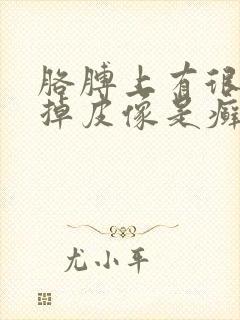 胳膊上有很
掉皮像是癣
尤小平